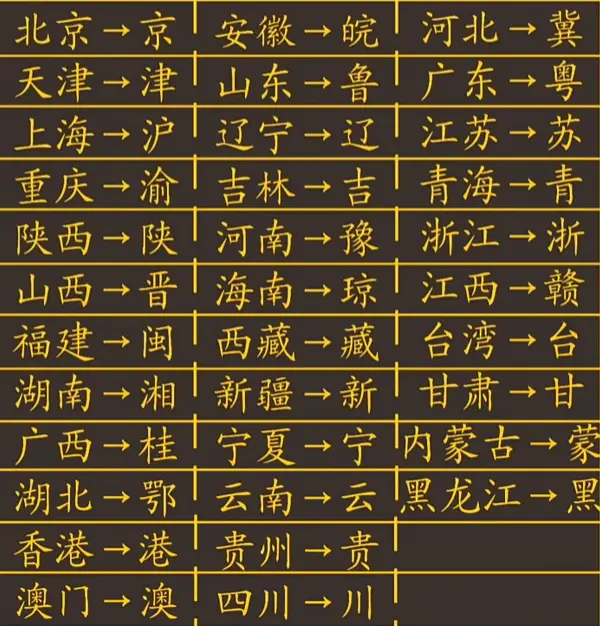 北京→京 安徽→皖 河北→冀
天津→津 山东→鲁 广东→粤
上海→沪 辽宁→辽 江苏→苏
重庆→渝 吉林→吉 青海→青
陕西→陕 河南→豫 浙江→浙
山西→晋 海南→琼 江西→赣
福建→闽 西藏→藏 台湾→台
湖南→湘 新疆→新 甘肃→甘
广西→桂 宁夏→宁 内蒙古→蒙
湖北→鄂 云南→云 黑龙江→黑
香港→港 贵州→贵
澳门→澳 四川→川